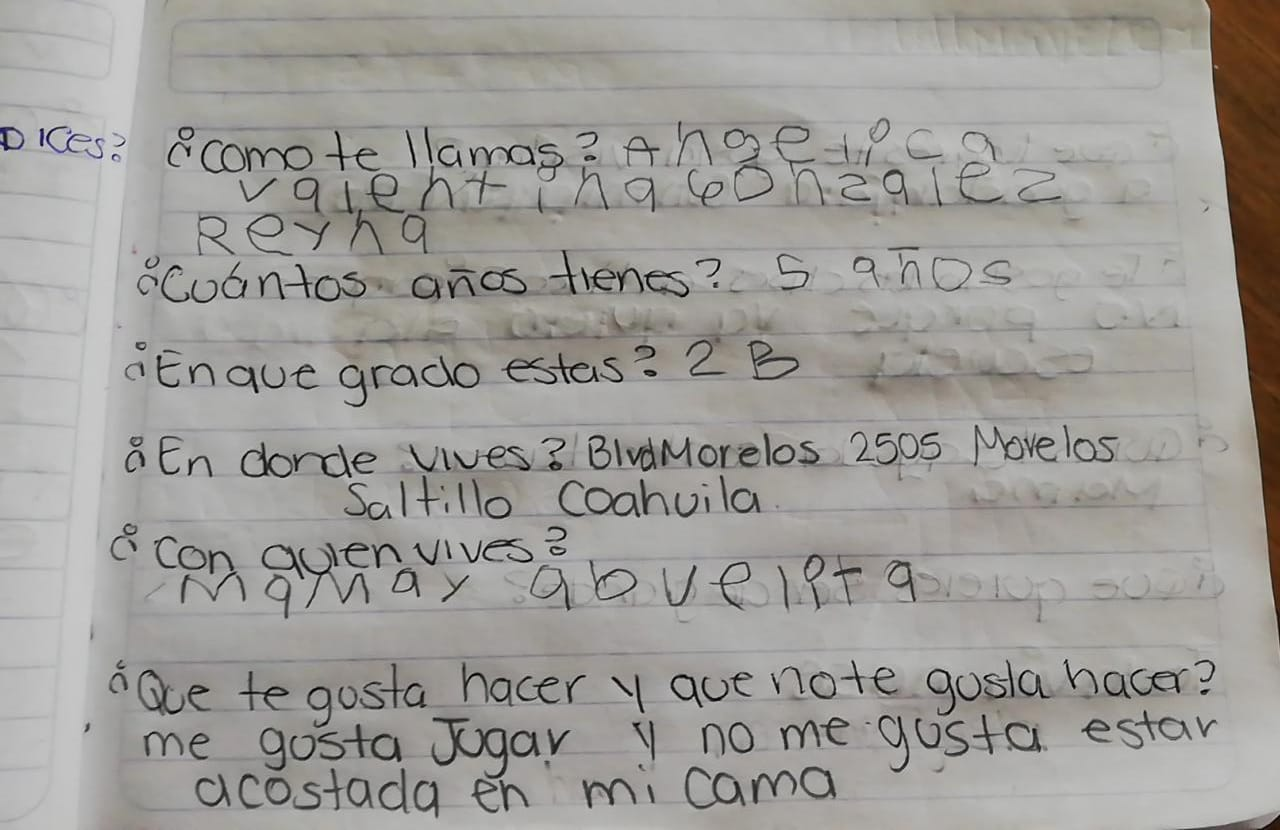 DICes?
¿como te llamas? Angelica
valentina GOnzalez
Reyna
¿Cuántos años tienes? 5 años
¿En que grado estas? 2 B
¿En donde vives? Blvd Morelos 2505 Morelos
Saltillo Coahuila.
¿con quien vives?
MaMa y abuelita
¿Que te gusta hacer y que no te gusta hacer?
me gosta Jugar y no me gusta estar
acostada en mi cama